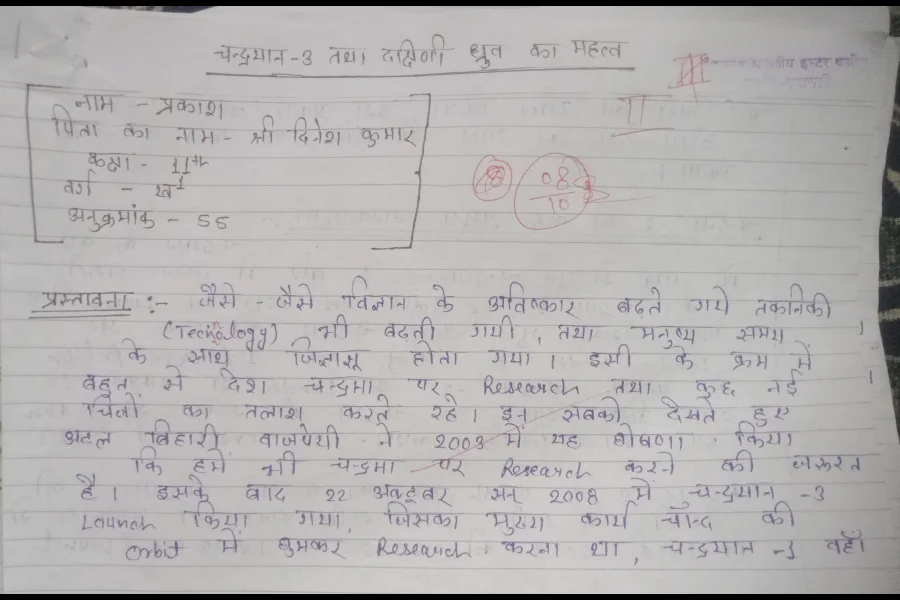 चन्द्रयान-3 तथा दक्षिणी ध्रुव का महत्व
नाम - प्रकाश
पिता का नाम - श्री दिनेश कुमार
कक्षा - 11th
वर्ग - ख1
अनुक्रमांक - 55
08
10
प्रस्तावना :- जैसे-जैसे विज्ञान के अविष्कार बढ़ते गये तकनिकी
(Technology) भी बढ़ती गयी, तथा मनुष्य समय
के साथ जिज्ञासू होता गया। इसी के क्रम में
बहुत से देश चन्द्रमा पर Research तथा कुछ नई
चिजों का तलाश करते रहे। इन सबको देखते हुए
अटल बिहारी वाजपेयी ने 2003 में यह घोषणा किया
कि हमें भी चन्द्रमा पर Research करने की जरूरत
है। इसके बाद 22 अक्टूबर सन् 2008 में चन्द्रयान -3
Launch किया गया, जिसका मुख्य कार्य चाँद की
orbit में घुमकर Research करना था, चन्द्रयान -1 वहाँ